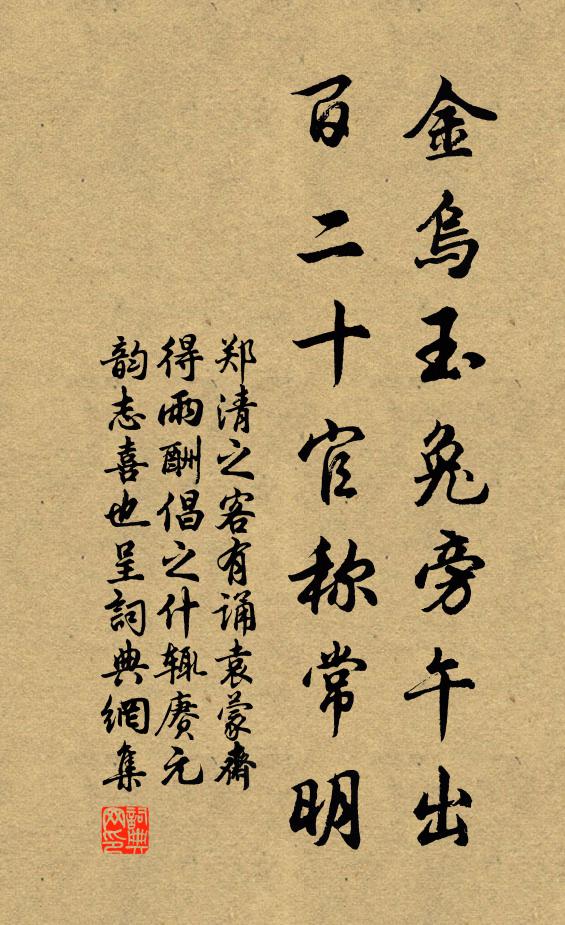 金烏玉兔旁午出
百二十官称常明
郑清之客有诵袁蒙齋
得雨酬倡之什辄赓元
韵志喜也呈詞典網集
詞典网印